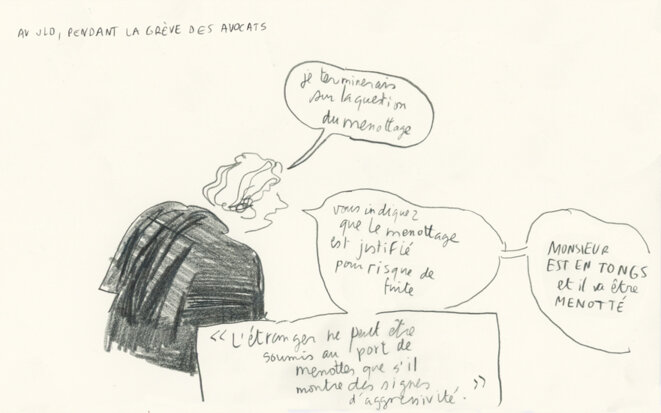 AU JLD, PENDANT LA GRÈVE DES AVOCATS
je terminerais
sur la question
du menottage
vous indiquez
que le menottage
est justifié
pour risque de
fuite
MONSIEUR
EST EN TONGS
et il va être
MENOTTÉ
« L'étranger ne peut être
soumis au port de
menottes que s'il
montre des signes
d'aggressivité. »